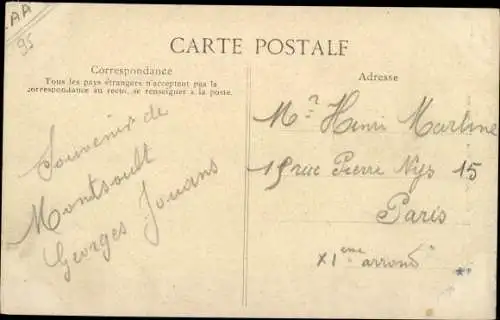 AA
95
CARTE POSTALE
Correspondance
Tous les pays étrangers n'acceptent pas la
correspondance au recto, se renseigner à la poste.
Souvenir de
Montsoult
Georges Jouans
Adresse
Mr Henri Marline
15 rue Pierre Nys 15
Paris
XIeme arrond